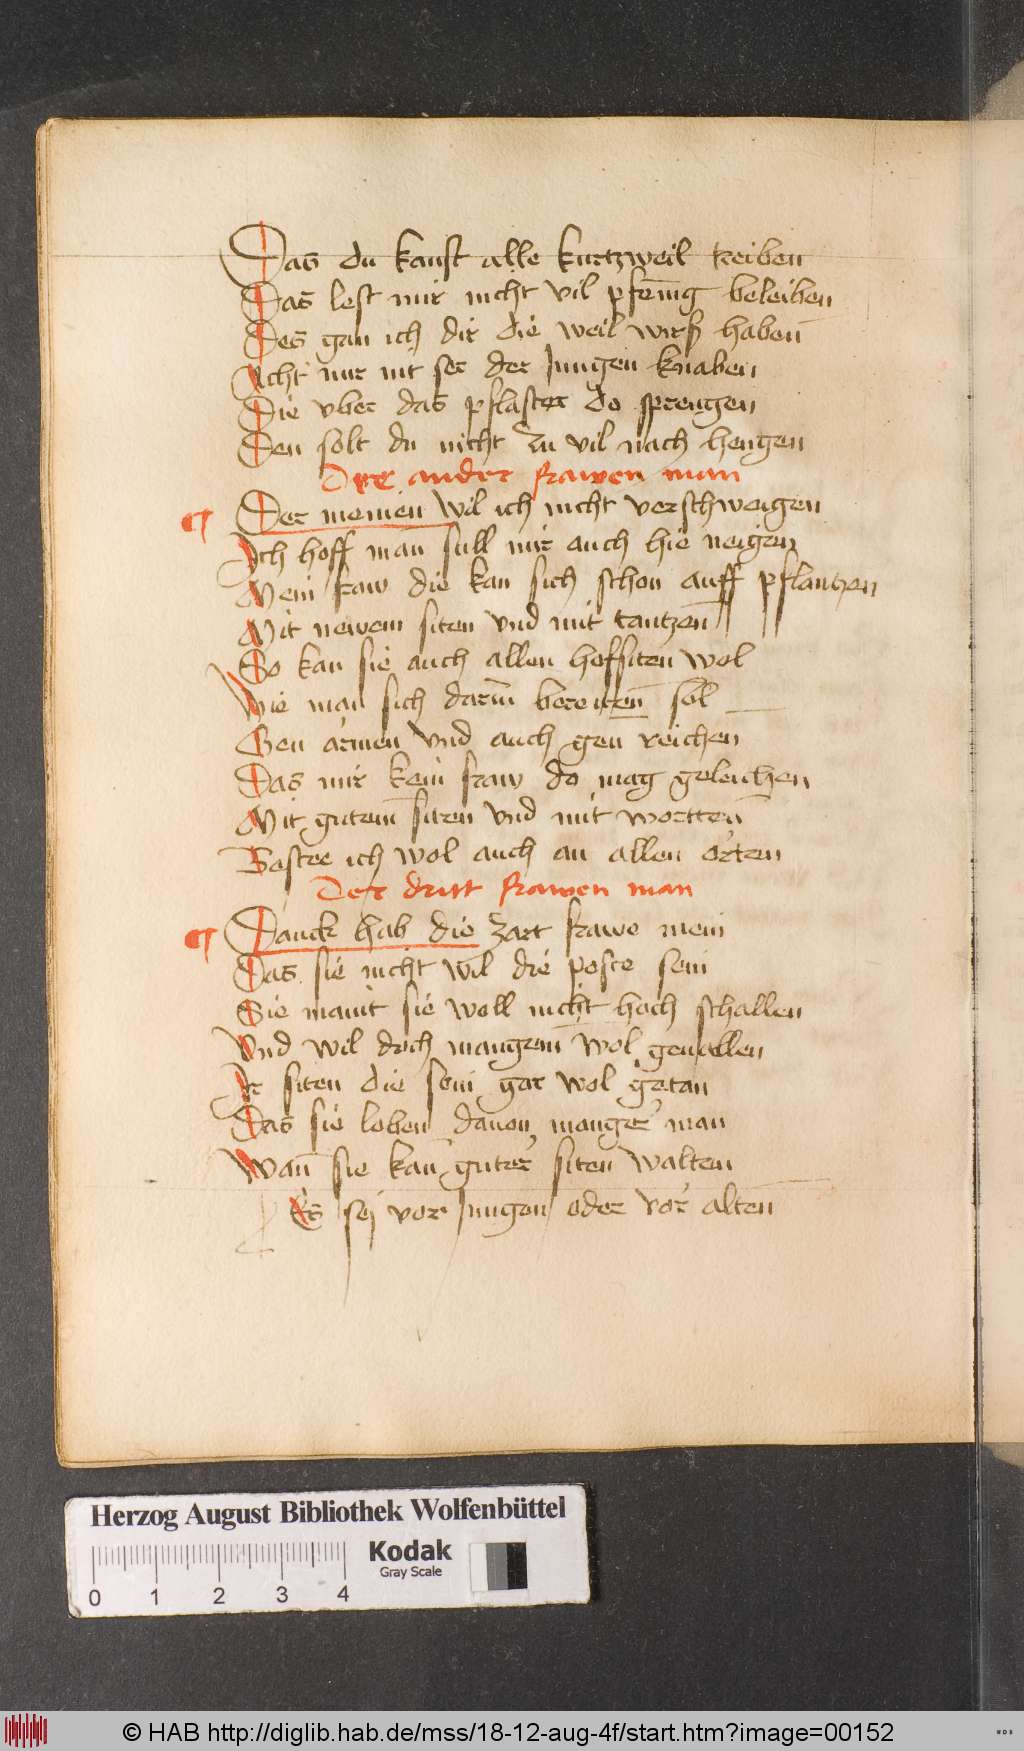 Das du kanst alle kurtzweil treiben
Das lest mir nicht vil pfenig beleiben
Des gan ich dir die weil wirß haben
Acht mir nit ser der Jungen knaben
Die vber das pflaster do sprengen
Den solt du nicht zu vil nach hengen
Der ander frawen man
Der meinen wil ich nicht verschweigen
Ich hoff man sull mir auch hie neigen
Mein fraw die kan sich schon auff pflantzen
Mit newem siten vnd mit tantzen
So kan sie auch allen hoffsiten wol
Wie man sich darin bereiten sol
Gen armen vnd auch gen reichen
Das mir kein fraw do mag geleichen
Mit gutem siten vnd mit wortten
Bester ich wol auch an allen orten
Der dritt frawen man
Danck hab die zart frawe mein
Das sie nicht wil die peste sein
Sie maint sie woll nicht hoch schallen
Vnd wil doch mangem wol geuallen
Ir siten die sein gar wol getan
Das sie loben dauon manger man
Wan sie kan guter siten walten
Es sej vor Jungen oder vor alten
Herzog August Bibliothek Wolfenbüttel
Kodak
Gray Scale
0 1 2 3 4
© HAB http://diglib.hab.de/mss/18-12-aug-4f/start.htm?image=00152